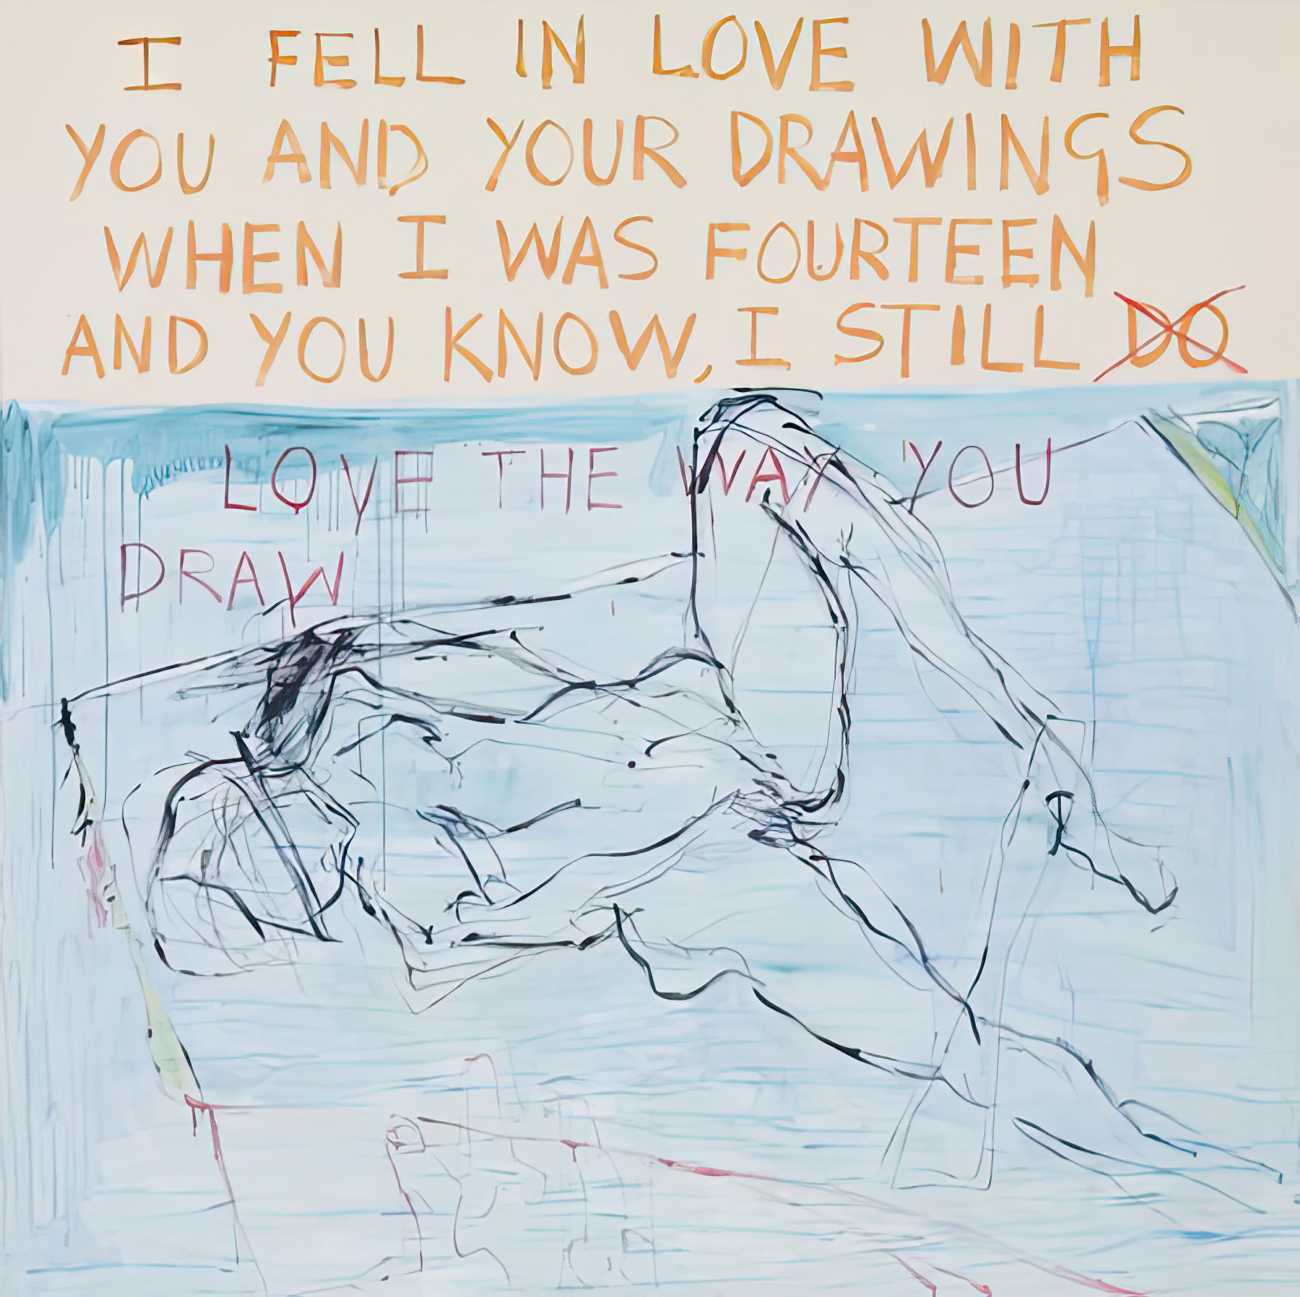 I FELL IN LOVE WITH
YOU AND YOUR DRAWINGS
WHEN I WAS FOURTEEN
AND YOU KNOW, I STILL DO
LOVE THE WAY YOU
DRAW